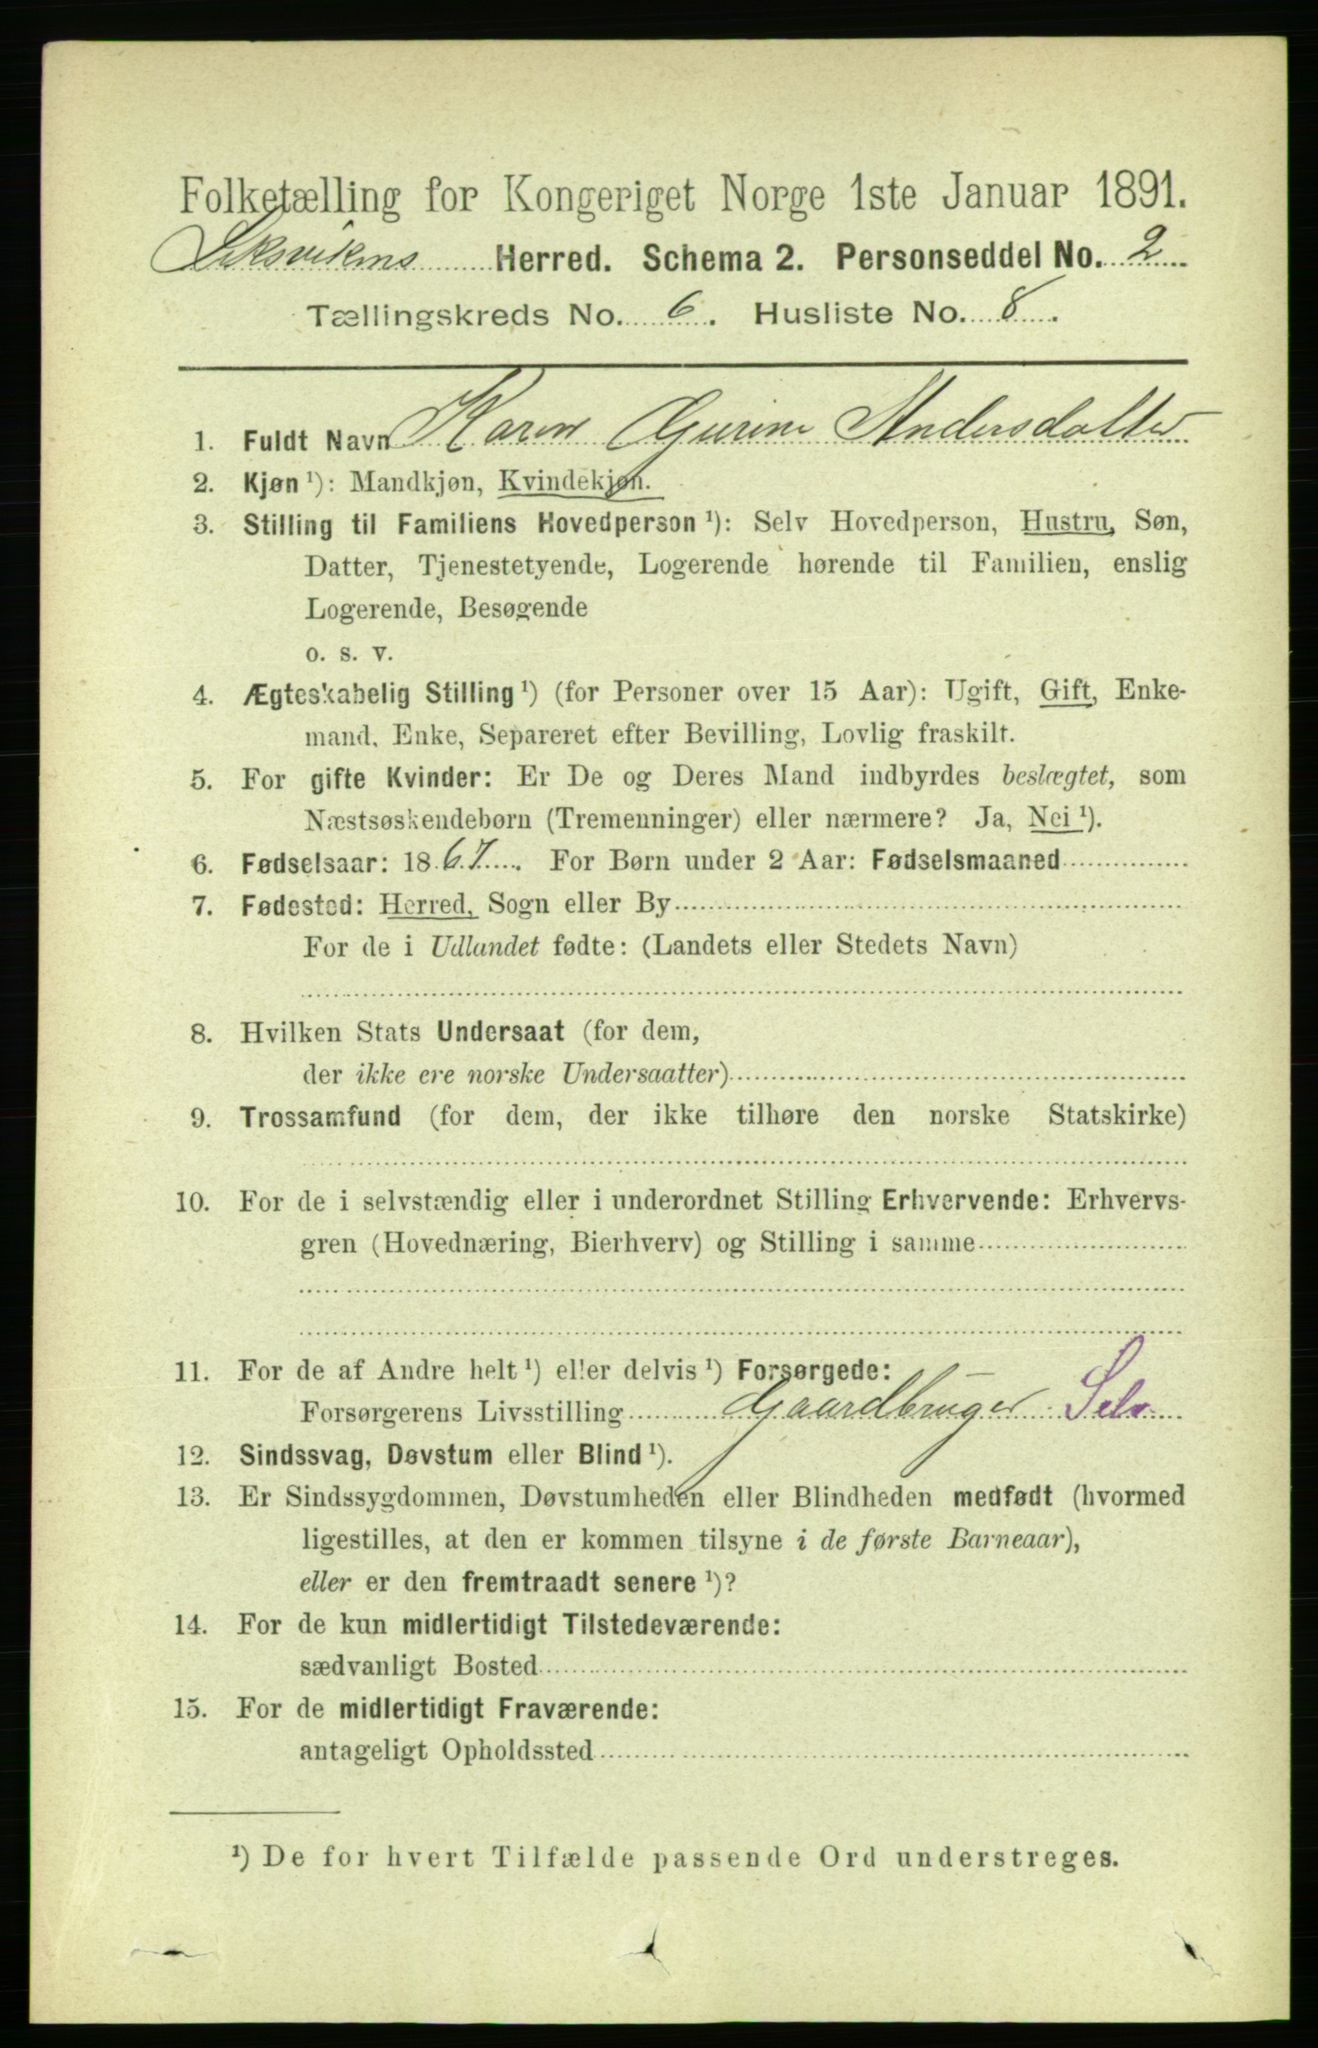 Folketælling for Kongeriget Norge 1ste Januar 1891.
Leksvikens Herred. Schema 2. Personseddel No. 2
Tællingskreds No. 6. Husliste No. 8.
1. Fuldt Navn Karen Gurine Andersdatter
2. Kjøn ¹): Mandkjøn, Kvindekjøn.
3. Stilling til Familiens Hovedperson ¹): Selv Hovedperson, Hustru, Søn,
Datter, Tjenestetyende, Logerende hørende til Familien, enslig
Logerende, Besøgende
o. s. v.
4. Ægteskabelig Stilling ¹) (for Personer over 15 Aar): Ugift, Gift, Enke-
mand, Enke, Separeret efter Bevilling, Lovlig fraskilt.
5. For gifte Kvinder: Er De og Deres Mand indbyrdes beslægtet, som
Næstsøskendebørn (Tremenninger) eller nærmere? Ja, Nei ¹).
6. Fødselsaar: 1867. For Børn under 2 Aar: Fødselsmaaned
7. Fødested: Herred, Sogn eller By
For de i Udlandet fødte: (Landets eller Stedets Navn)
8. Hvilken Stats Undersaat (for dem,
der ikke ere norske Undersaatter)
9. Trossamfund (for dem, der ikke tilhøre den norske Statskirke)
10. For de i selvstændig eller i underordnet Stilling Erhvervende: Erhvervs-
gren (Hovednæring, Bierhverv) og Stilling i samme
11. For de af Andre helt ¹) eller delvis ¹) Forsørgede:
Forsørgerens Livsstilling Gaardbruger Selv
12. Sindssvag, Døvstum eller Blind ¹).
13. Er Sindssygdommen, Døvstumheden eller Blindheden medfødt (hvormed
ligestilles, at den er kommen tilsyne i de første Barneaar),
eller er den fremtraadt senere ¹)?
14. For de kun midlertidigt Tilstedeværende:
sædvanligt Bosted
15. For de midlertidigt Fraværende:
antageligt Opholdssted
¹) De for hvert Tilfælde passende Ord understreges.